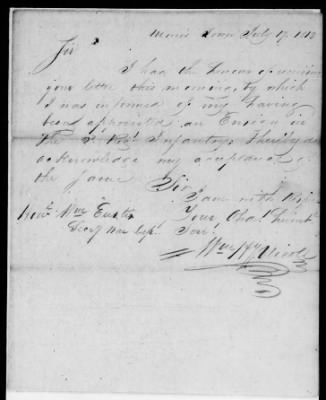 Town July 17, 1812
Sir
I had the honor of receiving
your letter this morning, by which
I was informed of my having
been appointed an Ensign in
the 2d Regt Infantry. I hereby do
acknowledge my acceptance of
the same Sir
I am with Resp
Your Obdt Servant
Honbl Wm Eustis
Secy War Dept
Wm Hy Nicoll